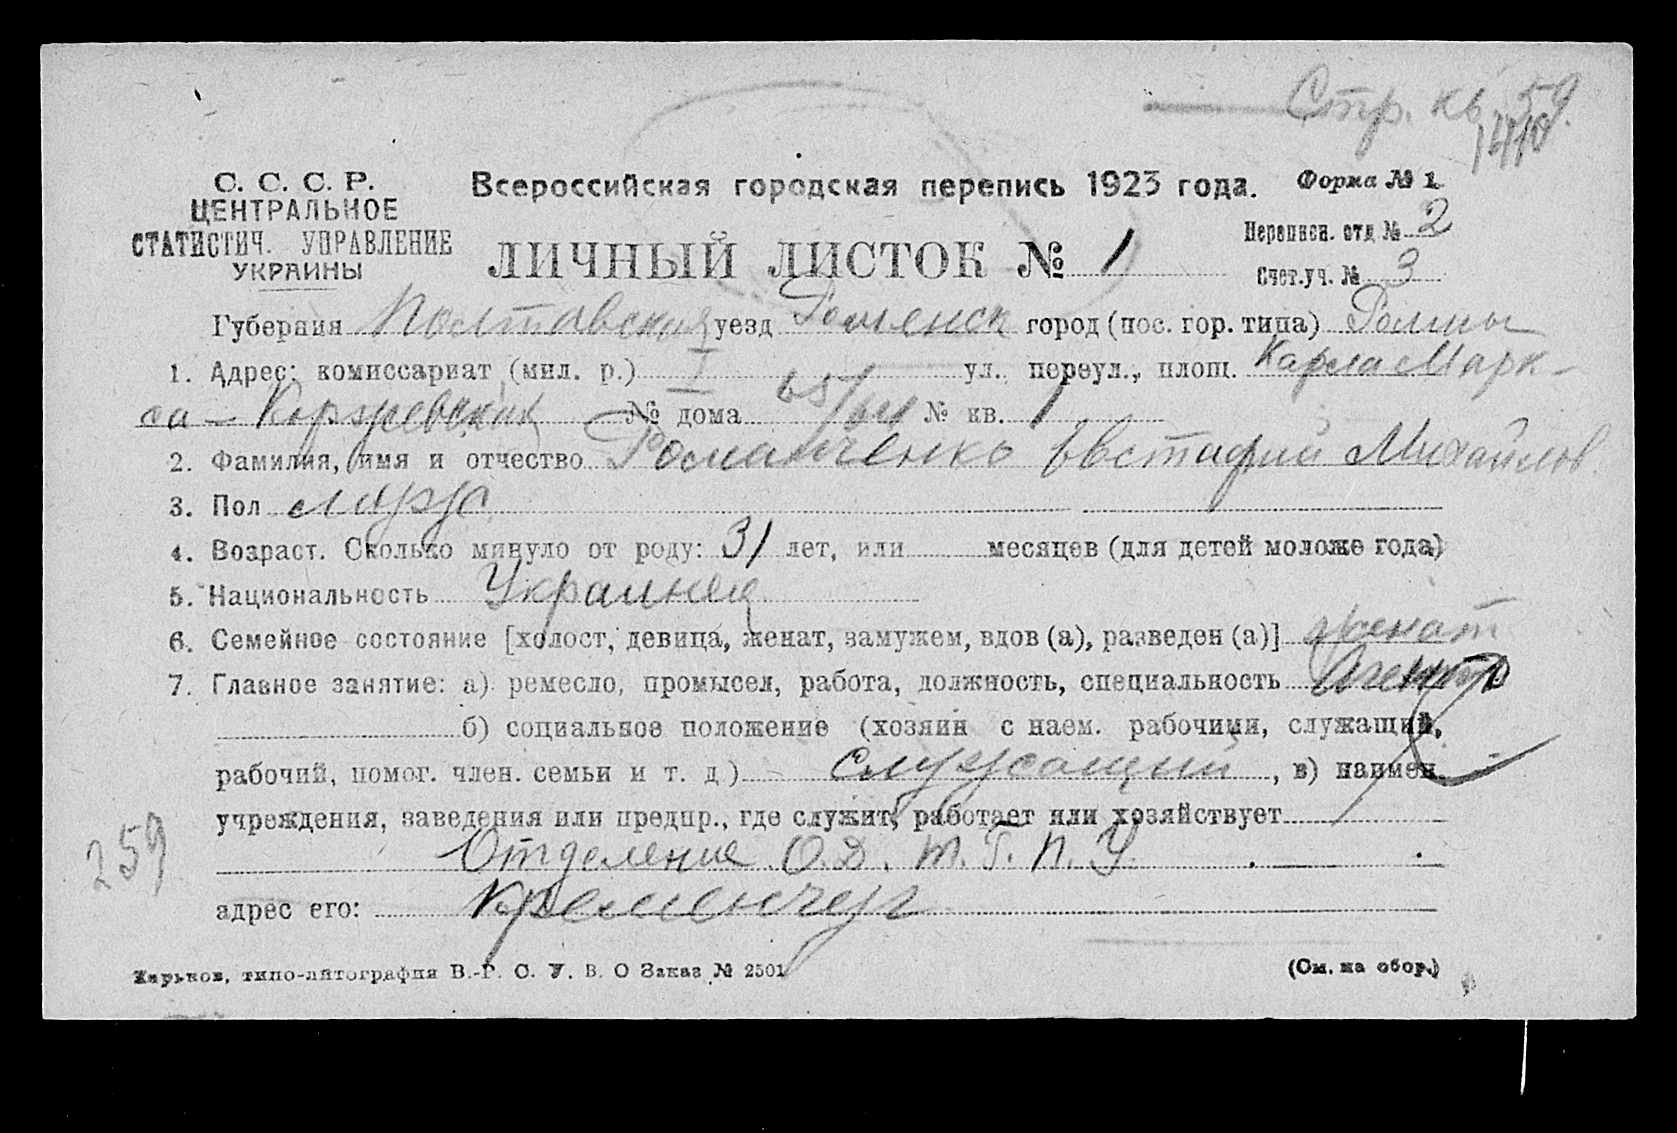 Стр. кв. 59.
С. С. С. Р.
ЦЕНТРАЛЬНОЕ
СТАТИСТИЧ. УПРАВЛЕНИЕ
УКРАИНЫ
Всероссийская городская перепись 1923 года.
Форма № 1.
ЛИЧНЫЙ ЛИСТОК № 1
Переписн. отд № 2
Счет.уч. № 3
Губерния Полтавская уезд Роменск город (пос. гор. типа) Ромны
1. Адрес: комиссариат (мил. р.) I ул., переул., площ. Карла Марк-
са - Коржевский № дома 65/64 № кв. 1
2. Фамилия, имя и отчество Романченко Евстафий Михайлов.
3. Пол муж.
4. Возраст. Сколько минуло от роду: 31 лет, или месяцев (для детей моложе года)
5. Национальность Украинец
6. Семейное состояние [холост, девица, женат, замужем, вдов (а), разведен (а)] женат
7. Главное занятие: а) ремесло, промысел, работа, должность, специальность Агент
б) социальное положение (хозяин с наем. рабочими, служащий,
рабочий, помог. член. семьи и т. д.) Служащий, в) наимен.
учреждения, заведения или предпр., где служит, работает или хозяйствует
Отделение О. Д. Т. Г. П. У.
адрес его: Кременчуг
259
Харьков, типо-литография В.-Г. С. У. В. О Заказ № 2501
(См. на обор.)